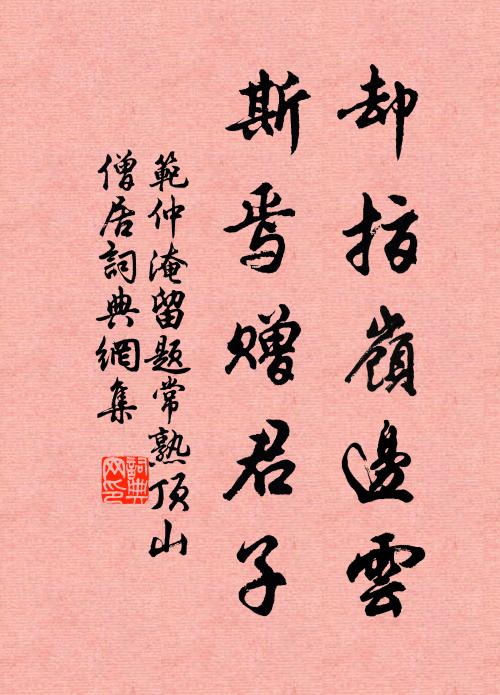 却指嶺邊雲
斯焉贈君子
範仲淹留題常熟頂山
僧居詞典網集
詞典网印